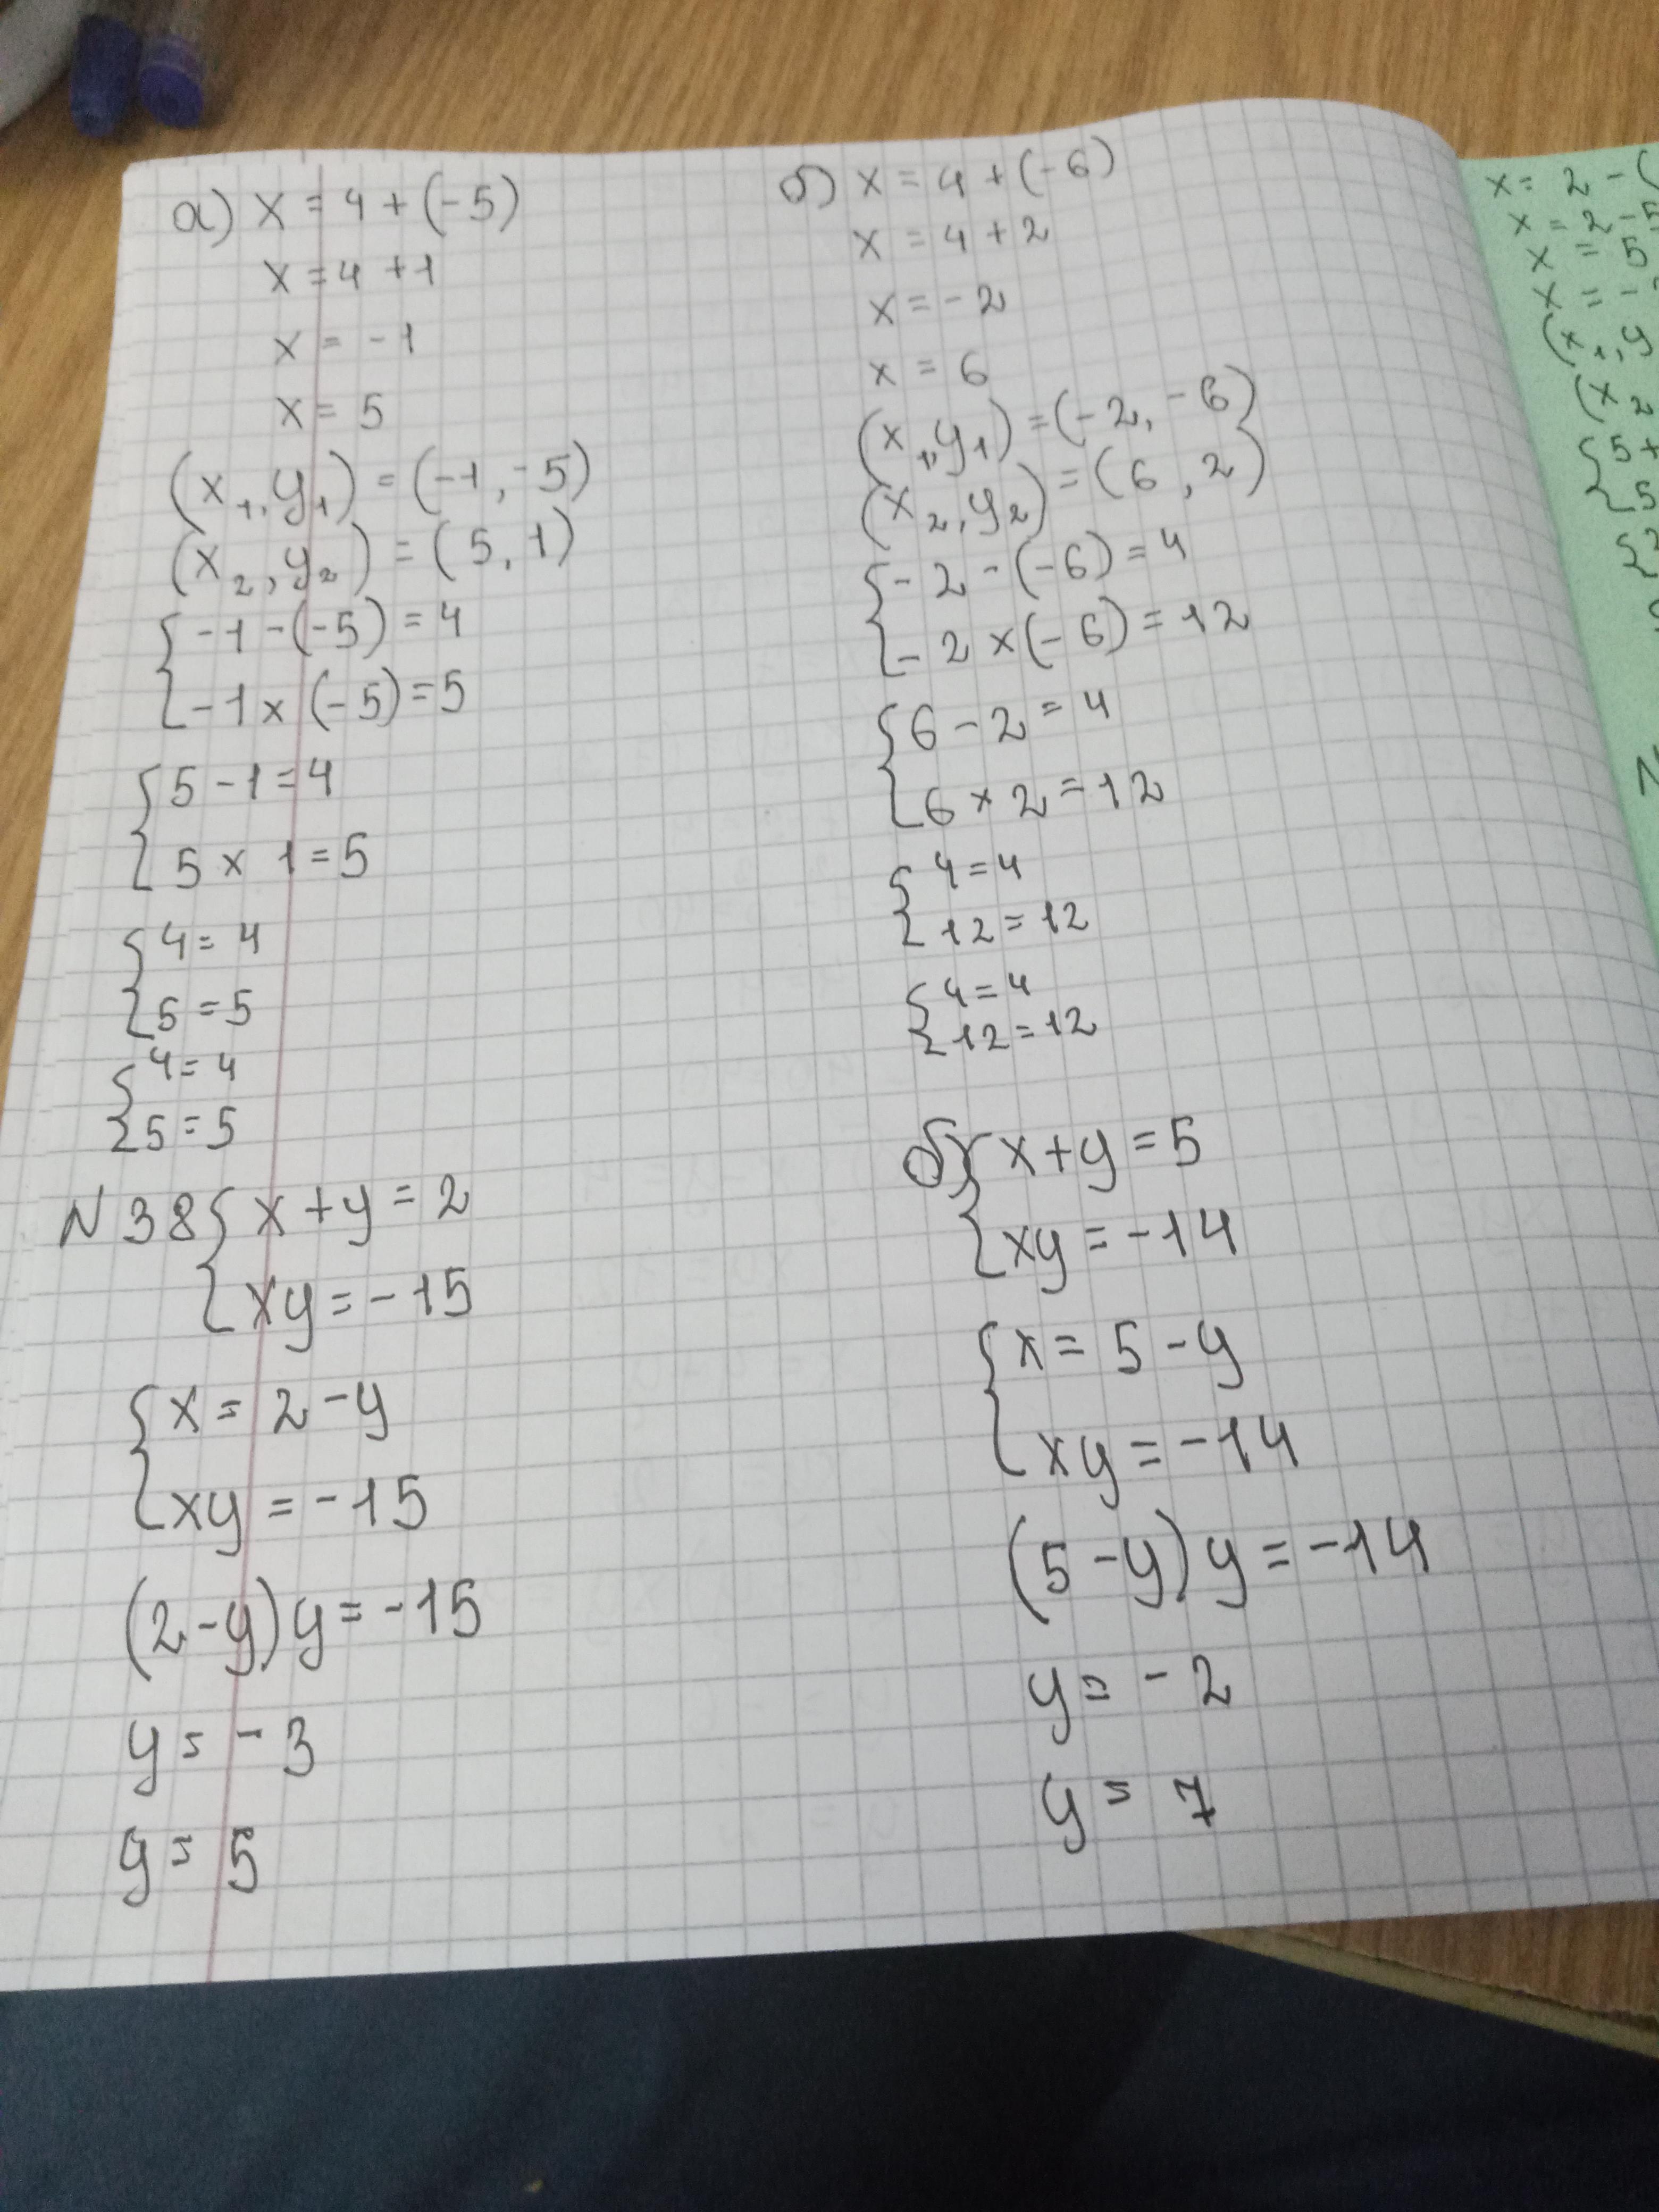 а) x = 4 + (-5)
x = 4 + 1
x = -1
x = 5
(x₁, y₁) = (-1, -5)
(x₂, y₂) = (5, 1)
{ -1 - (-5) = 4
{ -1 × (-5) = 5
{ 5 - 1 = 4
{ 5 × 1 = 5
{ 4 = 4
{ 5 = 5
{ 4 = 4
{ 5 = 5
N 38 { x + y = 2
{ xy = -15
{ x = 2 - y
{ xy = -15
(2 - y) y = -15
y = -3
y = 5
б) x = 4 + (-6)
x = 4 + 2
x = -2
x = 6
(x₁, y₁) = (-2, -6)
(x₂, y₂) = (6, 2)
{ -2 - (-6) = 4
{ -2 × (-6) = 12
{ 6 - 2 = 4
{ 6 × 2 = 12
{ 4 = 4
{ 12 = 12
{ 4 = 4
{ 12 = 12
б) { x + y = 5
{ xy = -14
{ x = 5 - y
{ xy = -14
(5 - y) y = -14
y = -2
y = 7
x = 2 - (
x = 2 - 5
x = 5
x = -
(x₁, y
(x₂
{ 5 +
{ 5